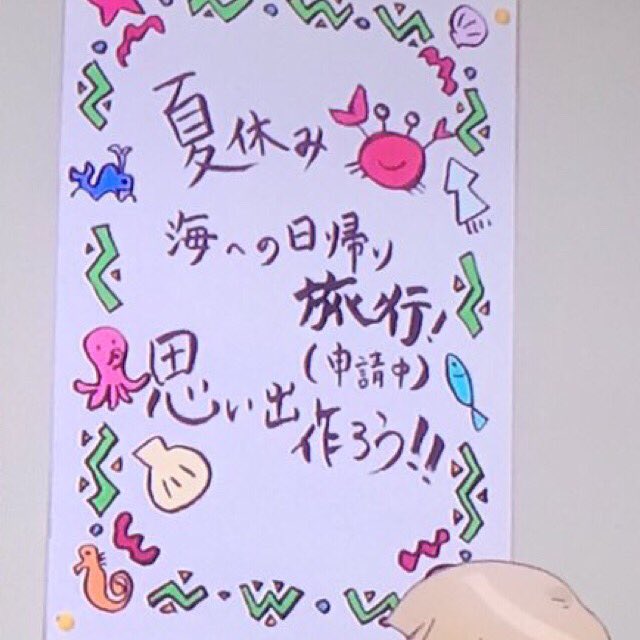 夏休み
海への日帰り
旅行!
(申請中)
思い出
作ろう!!